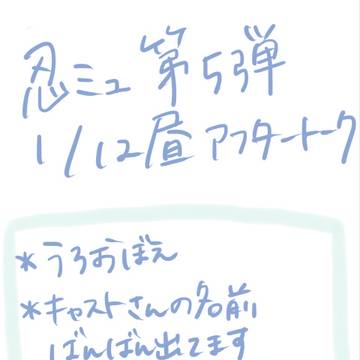 忍ミュ 第5弾
1/12昼アフタートーク
*うろおぼえ
*キャストさんの名前
ばんばん出てます